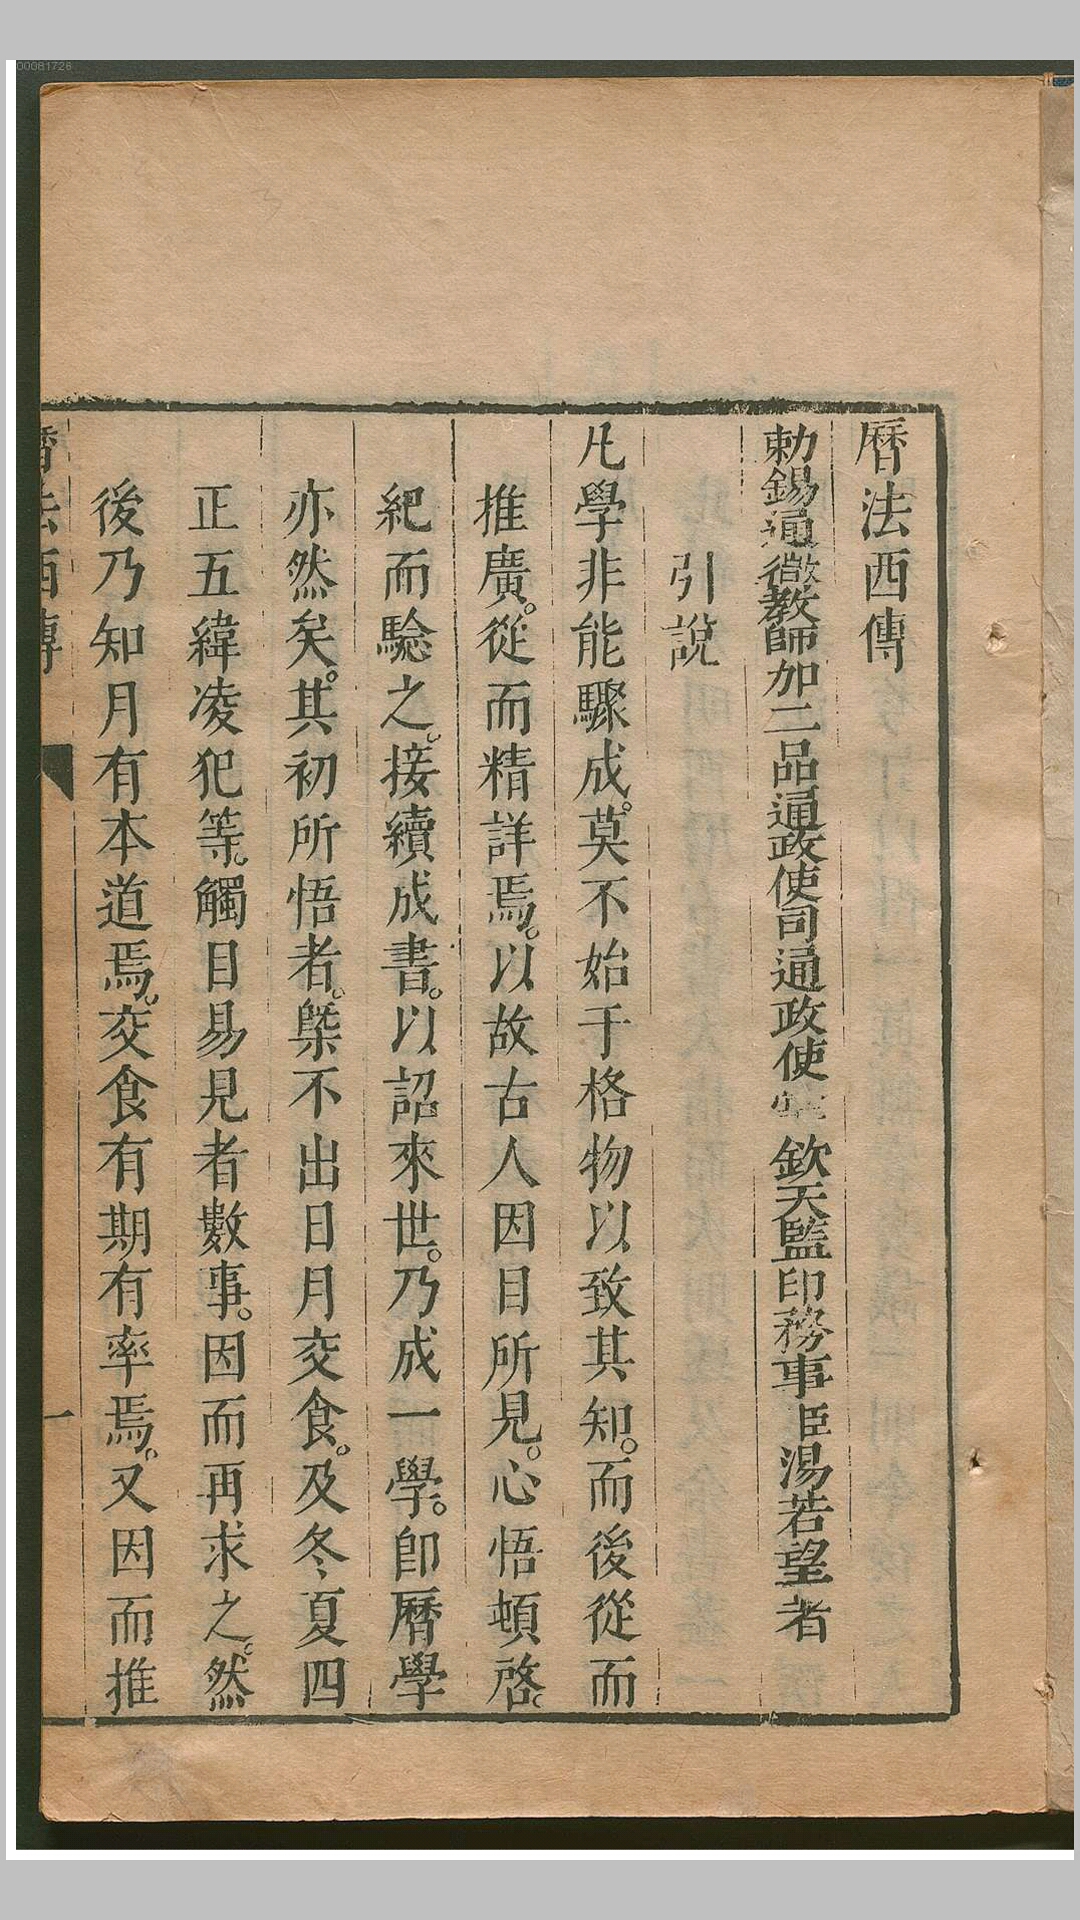 00081728
曆法西傳
勅錫通微教師加二品通政使司通政使掌欽天監印務事臣湯若望著
引說
凡學非能驟成。莫不始于格物以致其知。而後從而
推廣。從而精詳焉。以故古人因目所見。心悟頓啓。
紀而驗之。接續成書。以詔來世。乃成一學。卽曆學
亦然矣。其初所悟者。槩不出日月交食。及冬夏四
正五緯凌犯等。觸目易見者數事。因而再求之。然
後乃知月有本道焉。交食有期有率焉。又因而推
曆法西傳
一